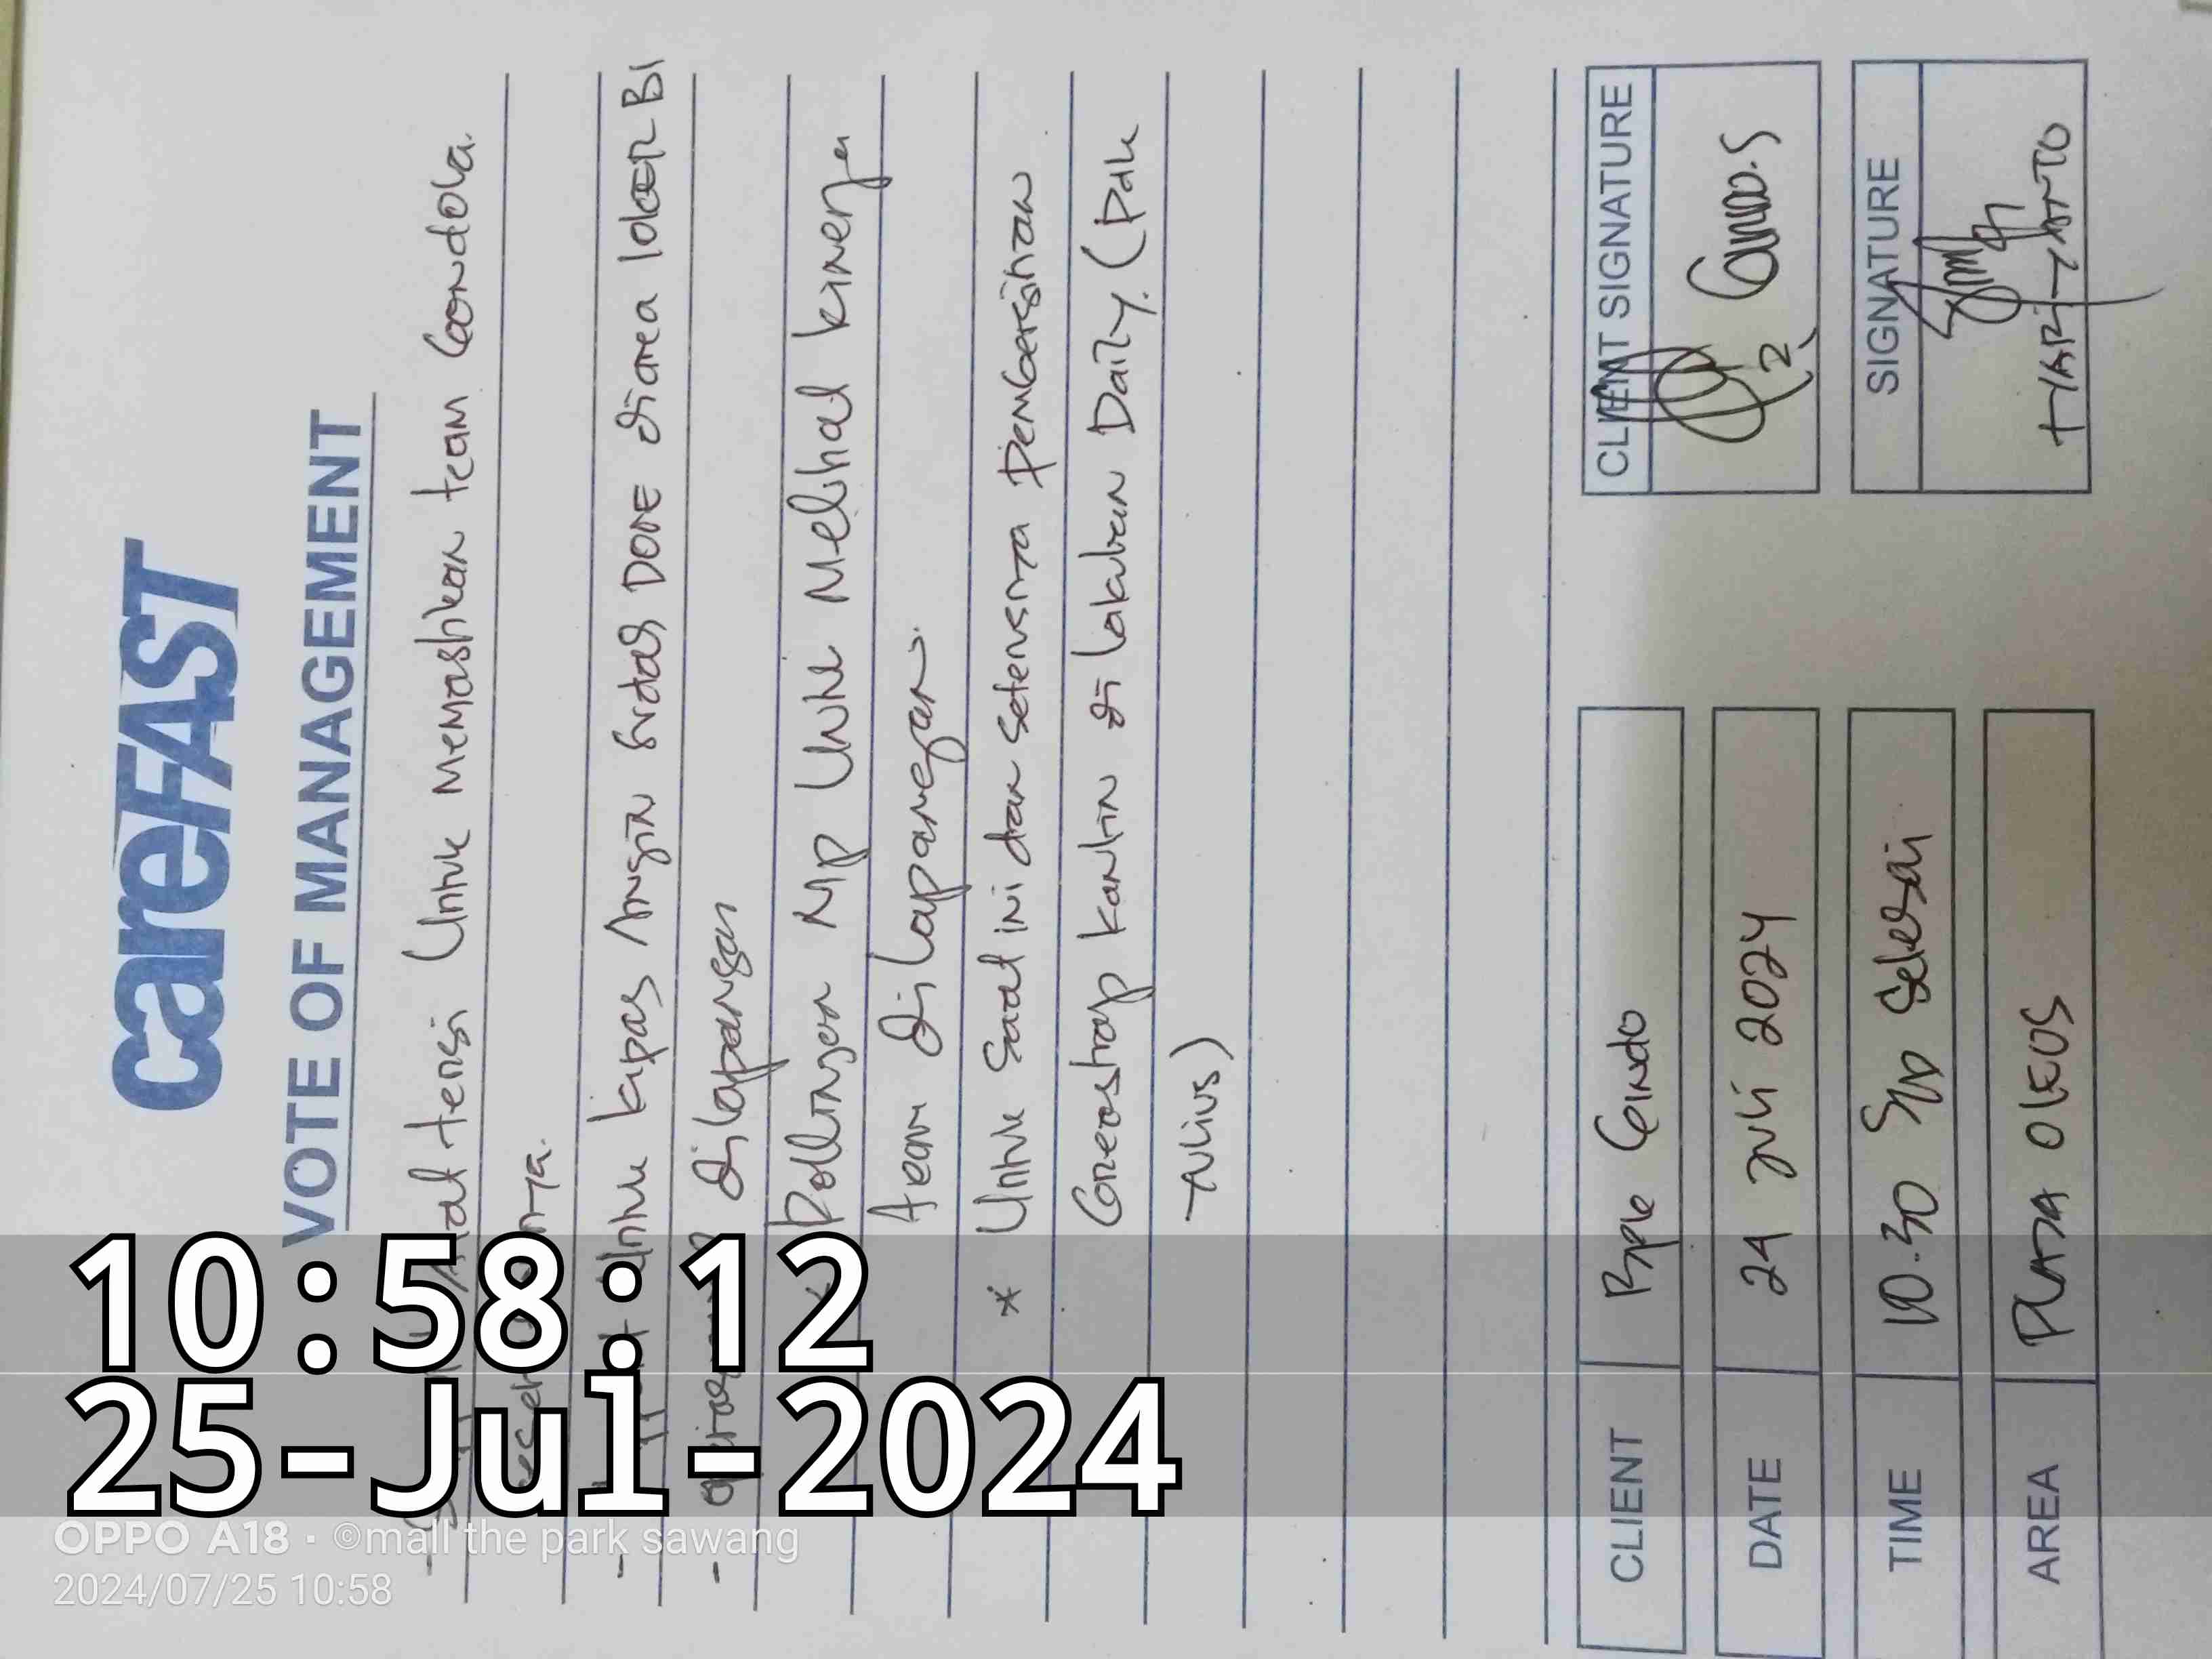 careFAST
VOTE OF MANAGEMENT
tensi Untuk memastikan team Gondola.
nya.
Untuk kipas Angin sudah DONE diarea loker B1
- dilapangan
Rollingan MP Untuk Melihat kinerja
team dilapangan.
* Untuk saat ini dan seterusnya Pembersihan
Greastrap kantin di lakukan Daily. (Pak
Yulius)
CLIENT
DATE 24 Juli 2024
TIME 10.30 S/D Selesai
AREA PLAZA OLEOS
CLIENT SIGNATURE
SIGNATURE
HARIYANTO
10:58:12
25-Jul-2024
OPPO A18 · ©mall the park sawang
2024/07/25 10:58